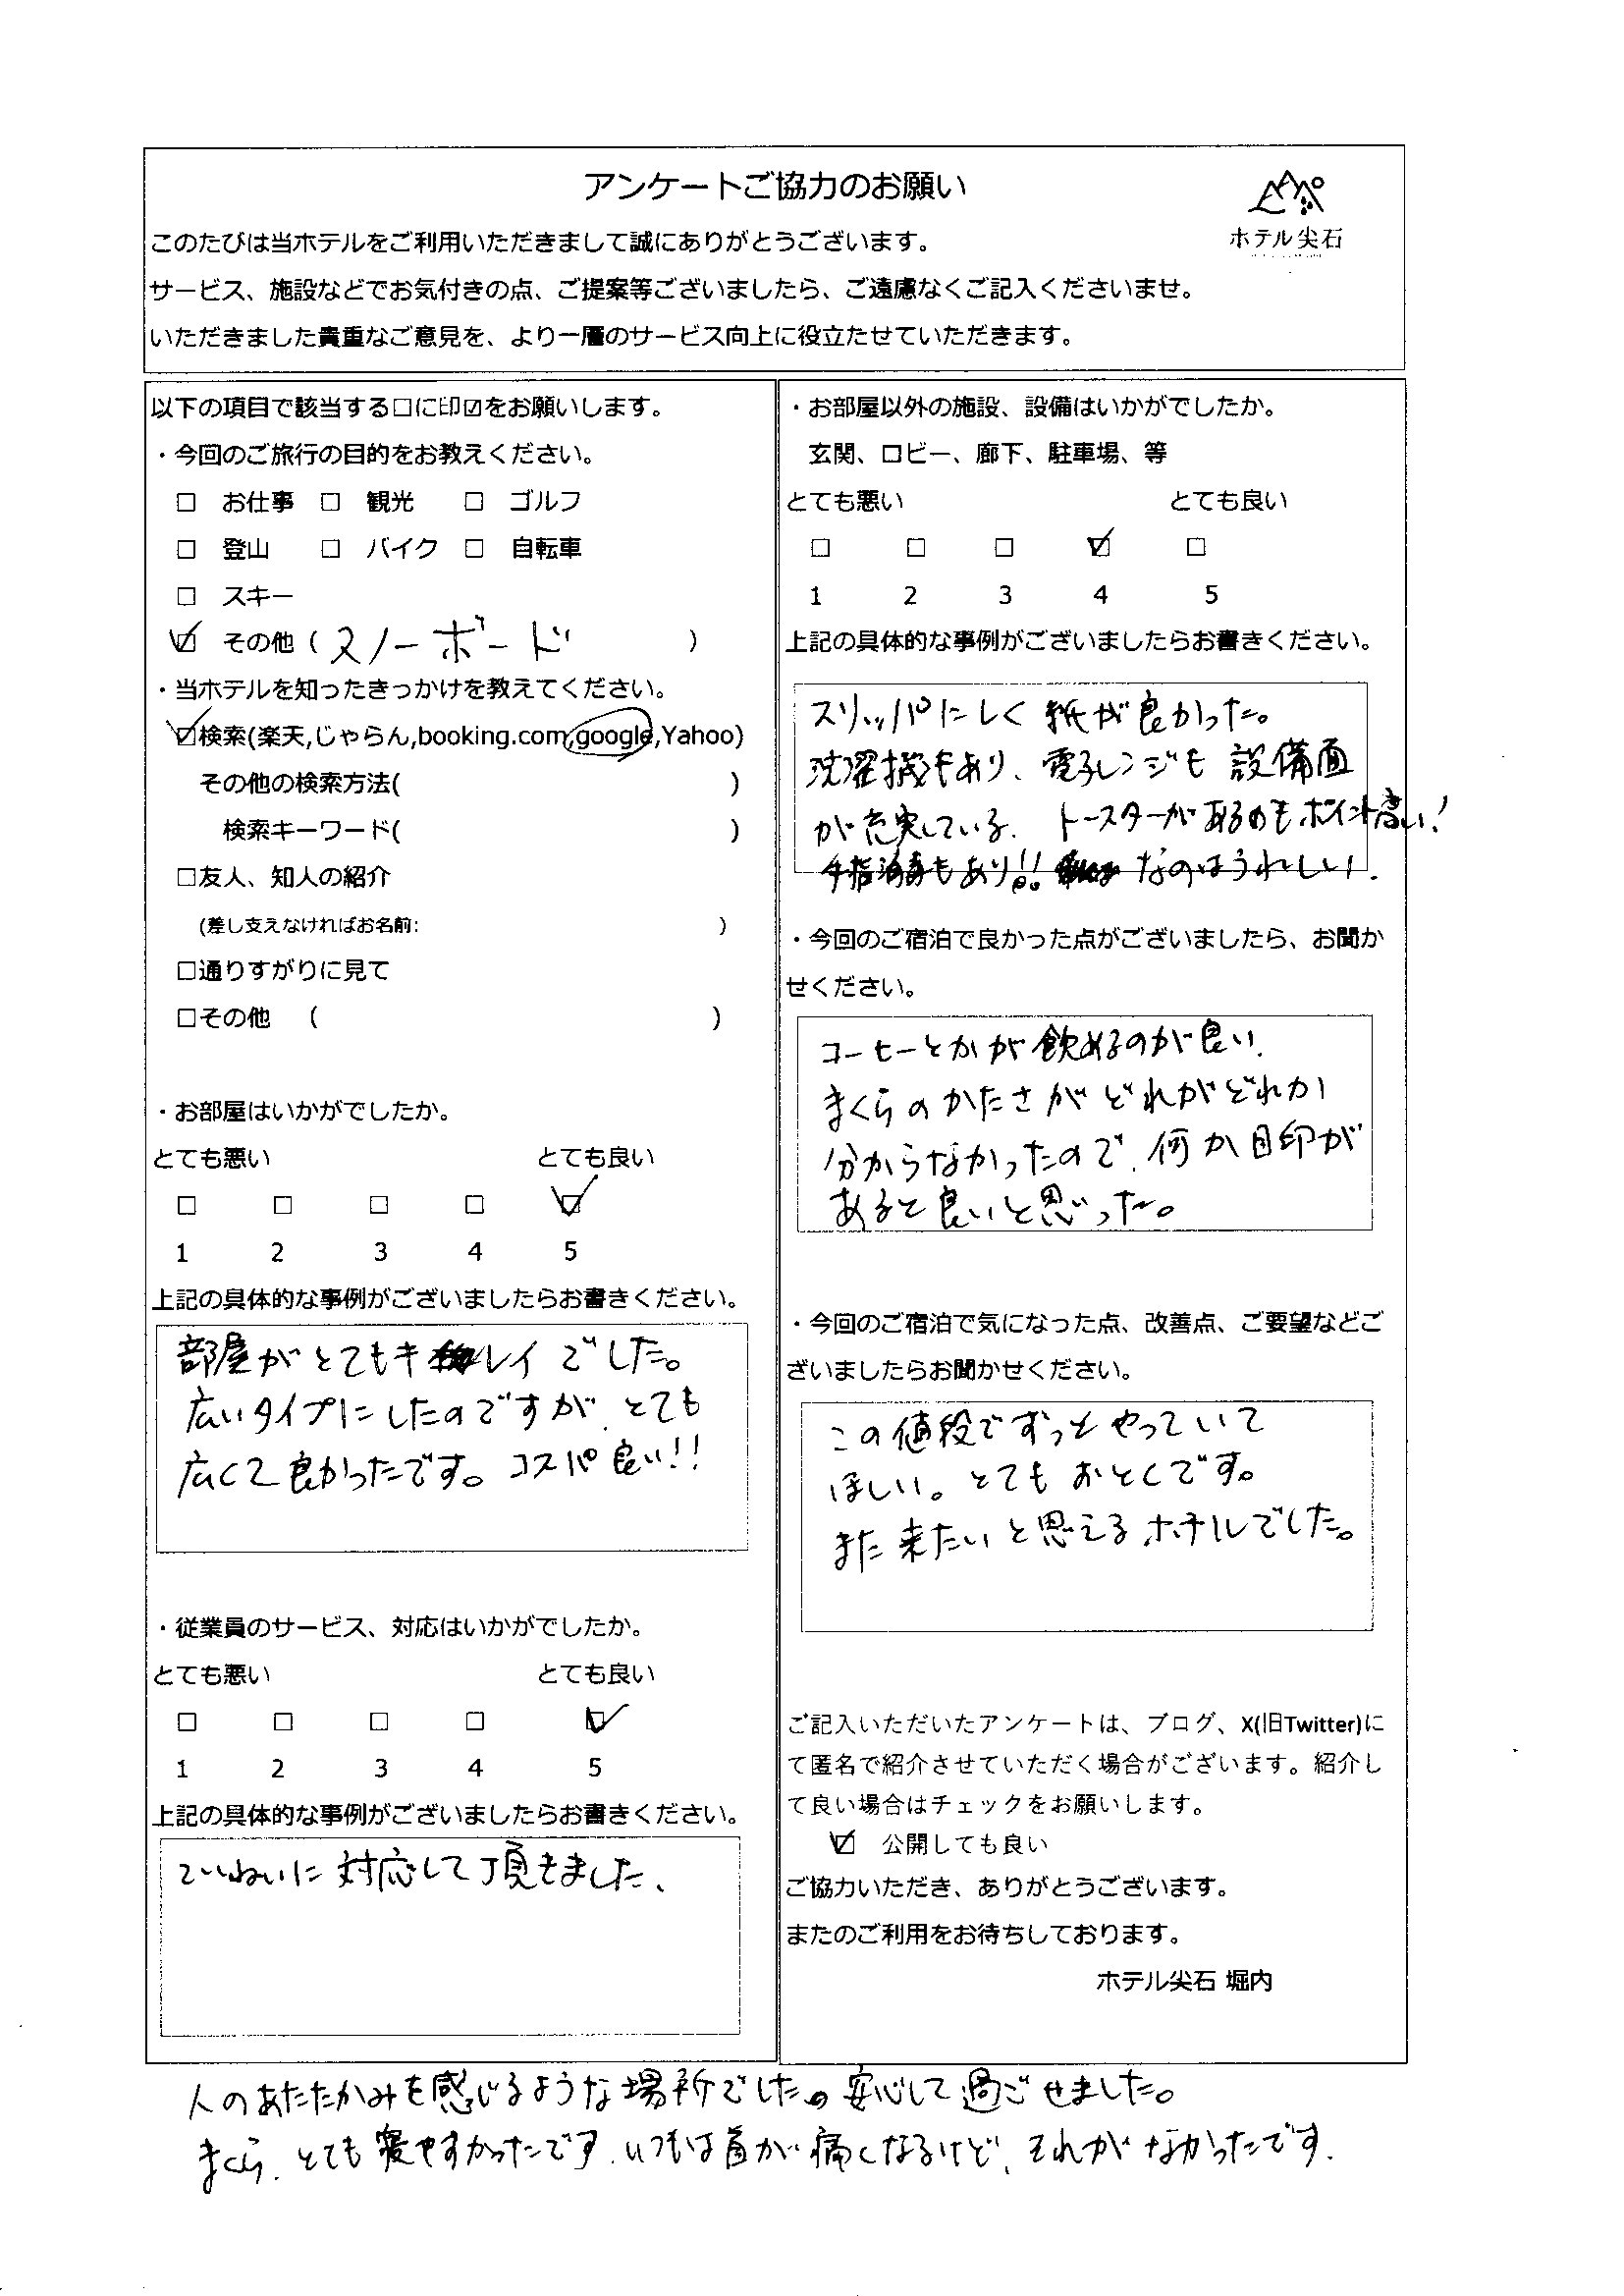 アンケートご協力のお願い
ホテル尖石
このたびは当ホテルをご利用いただきまして誠にありがとうございます。
サービス、施設などでお気付きの点、ご提案等ございましたら、ご遠慮なくご記入くださいませ。
いただきました貴重なご意見を、より一層のサービス向上に役立たせていただきます。
以下の項目で該当する□に印☑をお願いします。
・今回のご旅行の目的をお教えください。
□ お仕事 □ 観光 □ ゴルフ
□ 登山 □ バイク □ 自転車
□ スキー
☑ その他 ( スノーボード )
・当ホテルを知ったきっかけを教えてください。
☑検索(楽天,じゃらん,booking.com,google,Yahoo)
その他の検索方法( )
検索キーワード( )
□友人、知人の紹介
(差し支えなければお名前: )
□通りすがりに見て
□その他 ( )
・お部屋はいかがでしたか。
とても悪い とても良い
□ □ □ □ ☑
1 2 3 4 5
上記の具体的な事例がございましたらお書きください。
部屋がとてもキレイでした。
広いタイプにしたのですが、とても
広くて良かったです。コスパ良い!!
・従業員のサービス、対応はいかがでしたか。
とても悪い とても良い
□ □ □ □ ☑
1 2 3 4 5
上記の具体的な事例がございましたらお書きください。
ていねいに対応して頂きました、
・お部屋以外の施設、設備はいかがでしたか。
玄関、ロビー、廊下、駐車場、等
とても悪い とても良い
□ □ □ ☑ □
1 2 3 4 5
上記の具体的な事例がございましたらお書きください。
スリッパにしく紙が良かった。
洗濯機もあり、電子レンジも設備面
が充実している。トースターがあるのもポイント高い!
手指消毒もあり!! なのはうれしい.
・今回のご宿泊で良かった点がございましたら、お聞か
せください。
コーヒーとかが飲めるのが良い.
まくらのかたさがどれがどれか
分からなかったので、何か目印が
あると良いと思った。
・今回のご宿泊で気になった点、改善点、ご要望などご
ざいましたらお聞かせください。
この値段でずっとやっていて
ほしい。とてもおとくです。
また来たいと思えるホテルでした。
ご記入いただいたアンケートは、ブログ、X(旧Twitter)に
て匿名で紹介させていただく場合がございます。紹介し
て良い場合はチェックをお願いします。
☑ 公開しても良い
ご協力いただき、ありがとうございます。
またのご利用をお待ちしております。
ホテル尖石 堀内
人のあたたかみを感じるような場所でした。安心して過ごせました。
まくら、とても寝やすかったです.いつもは首が痛くなるけど、それがなかったです.